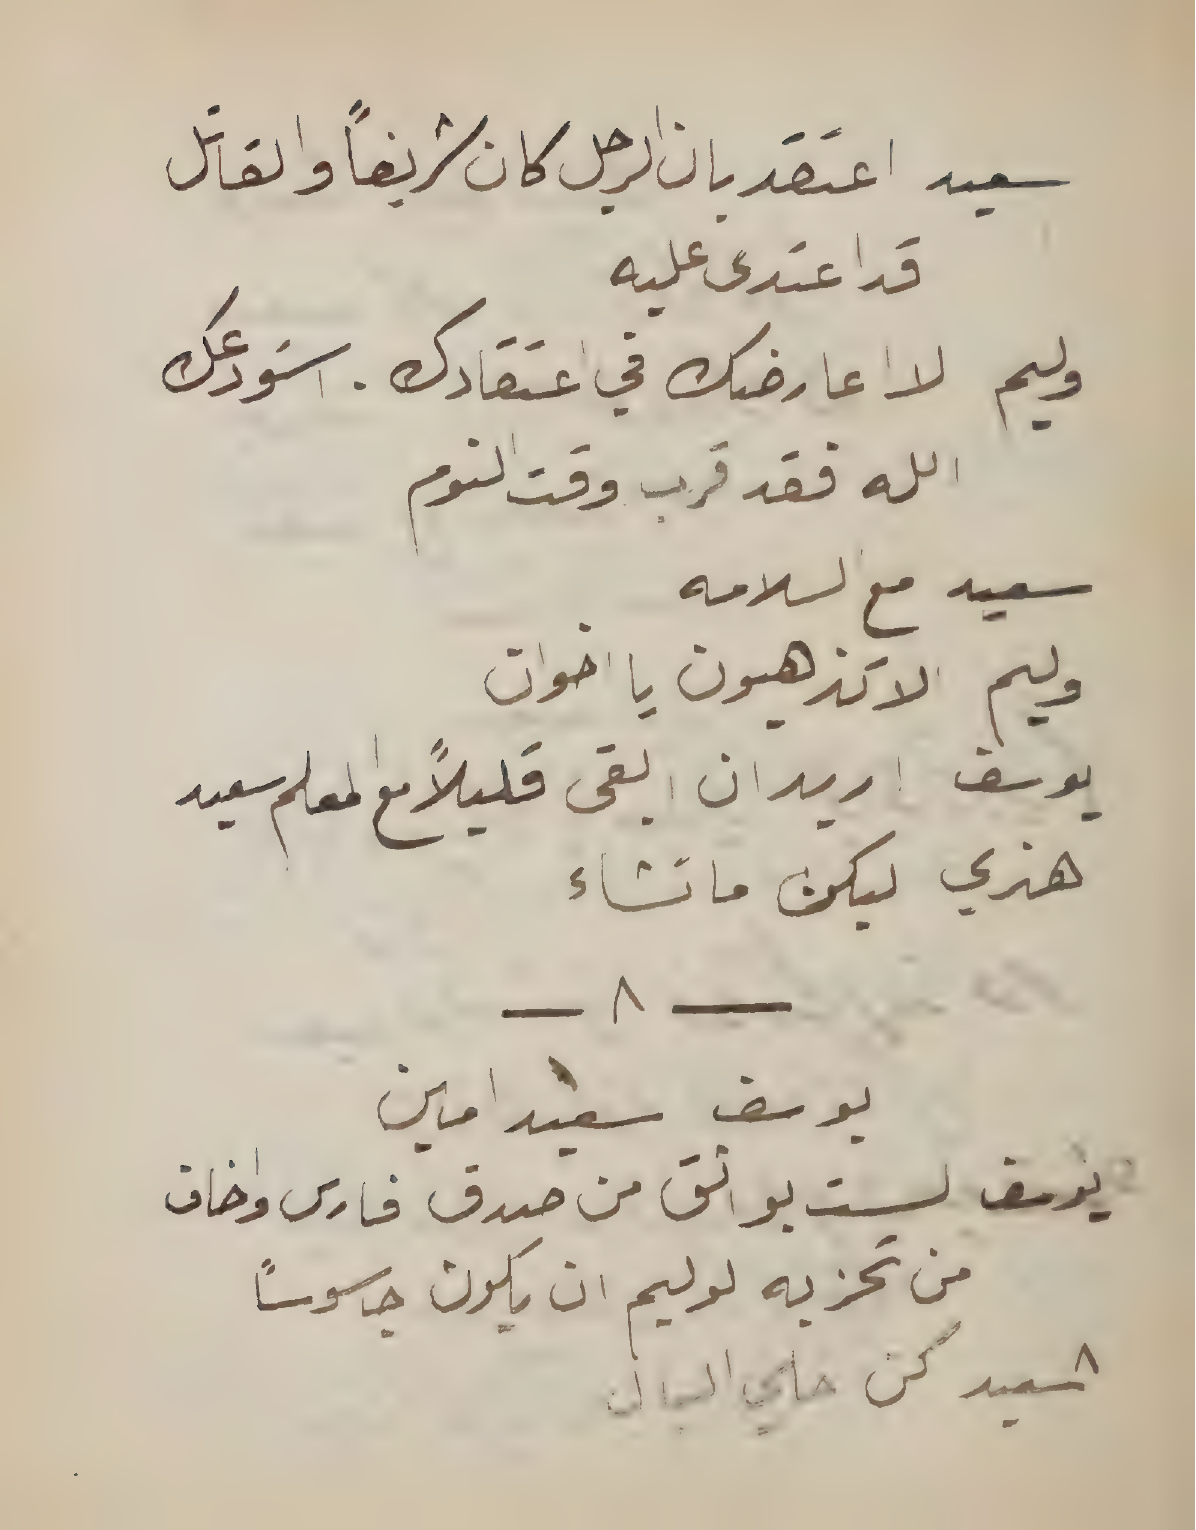 سعيد اعتقد بان الرجل كان شريفاً والقاتل
قد اعتدى عليه
وليم لا اعارضك في اعتقادك . استودعك
الله فقد قرب وقت النوم
سعيد مع السلامه
وليم الا تذهبون يا اخوان
يوسف اريد ان ابقى قليلاً مع المعلم سعيد
هنري ليكن ما تشاء
— ٨ —
يوسف سعيد امين
يوسف لست بواثق من صدق فارس واخاف
من تحزبه لوليم ان يكون جاسوساً
سعيد كن خالي البال